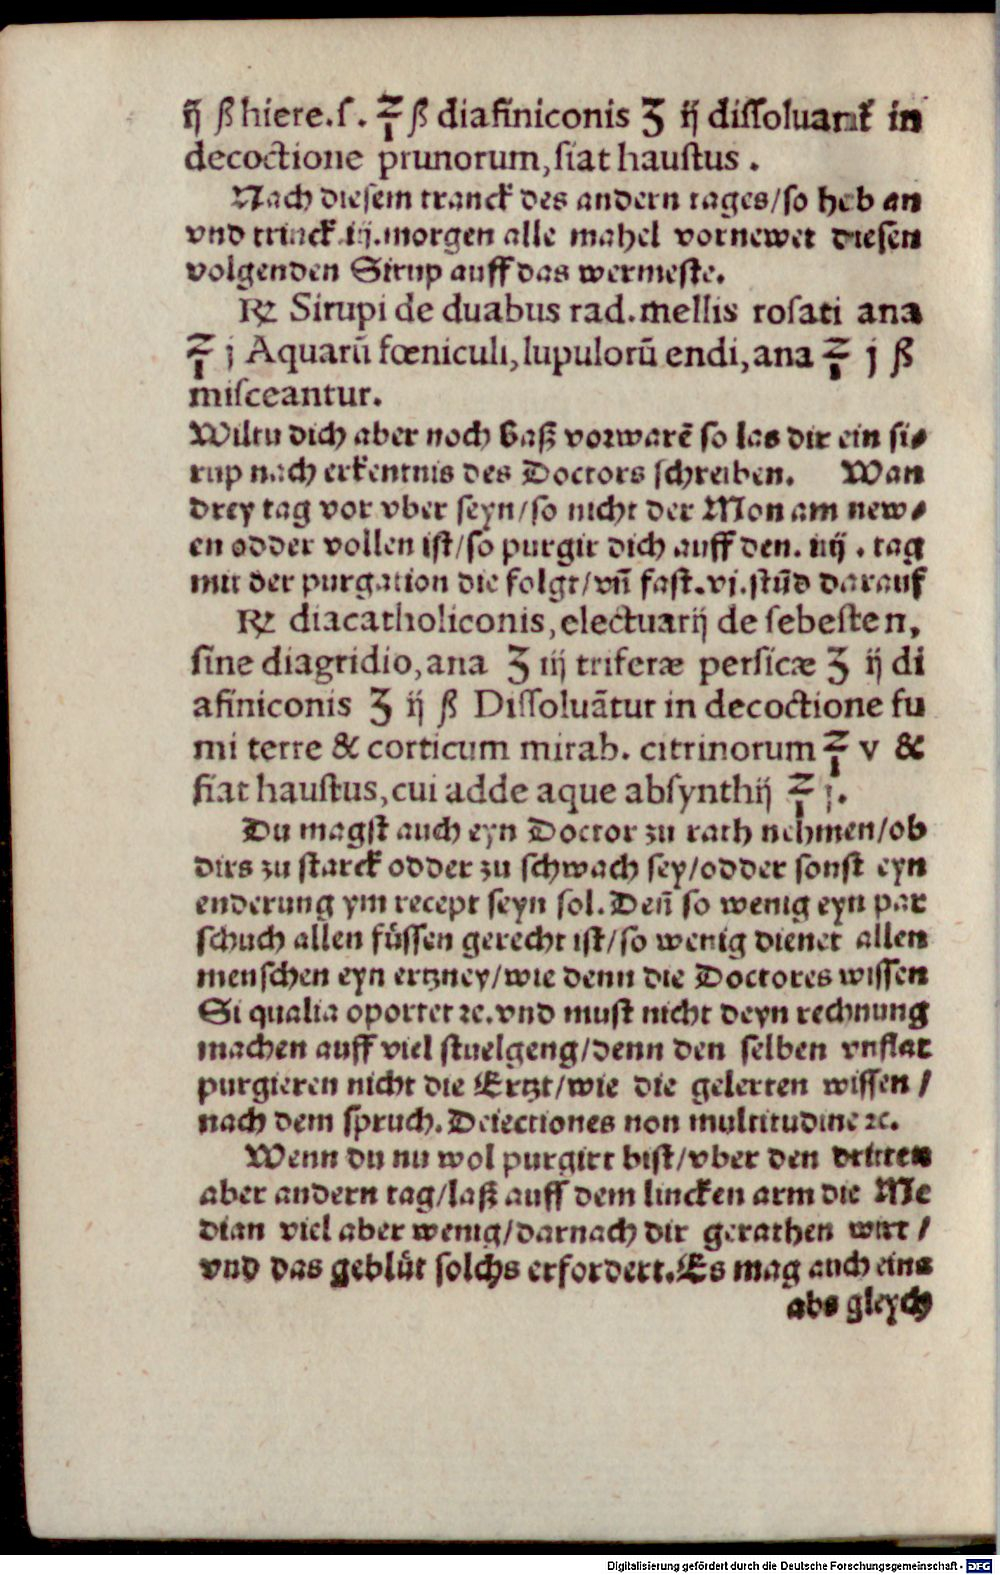 ij ß hiere.s. ℥ ß diafiniconis ʒ ij dissoluantꝰ in
decoctione prunorum, fiat haustus.
Nach diesem tranck des andern tages/so heb an
vnd trinck.iij.morgen alle mahel vornewet diesen
volgenden Sirup auff das wermeste.
℞ Sirupi de duabus rad. mellis rosati ana
℥ j Aquarū fœniculi, lupulorū endi, ana ℥ j ß
misceantur.
Wiltu dich aber noch baß vorwarē so las dir ein si⸗
rup nach erkentnis des Doctors schreiben. Wan
drey tag vor vber seyn/so nicht der Mon am new⸗
en odder vollen ist/so purgir dich auff den. iiij . tag
mit der purgation die folgt/vñ fast.vj.stūd darauf
℞ diacatholiconis, electuarij de sebesten,
sine diagridio, ana ʒ iij triferæ persicæ ʒ ij di
afiniconis ʒ ij ß Dissoluātur in decoctione fu
mi terre & corticum mirab. citrinorum ℥ v &
fiat haustus, cui adde aque absynthij ℥ j.
Du magst auch eyn Doctor zu rath nehmen/ob
dirs zu starck odder zu schwach sey/odder sonst eyn
enderung ym recept seyn sol. Deñ so wenig eyn par
schuch allen füssen gerecht ist/so wenig dienet allen
menschen eyn ertzney/wie denn die Doctores wissen
Si qualia oportet ⁊c. vnd must nicht deyn rechnung
machen auff viel stuelgeng/denn den selben vnflat
purgieren nicht die Ertzt/wie die gelerten wissen/
nach dem spruch. Deiectiones non multitudine ⁊c.
Wenn du nu wol purgirt bist/vber den dritten
aber andern tag/laß auff dem lincken arm die Me
dian viel aber wenig/darnach dir gerathen wirt/
vnd das geblüt solchs erfordert. Es mag auch eins
abs gleych
Digitalisierung gefördert durch die Deutsche Forschungsgemeinschaft - DFG